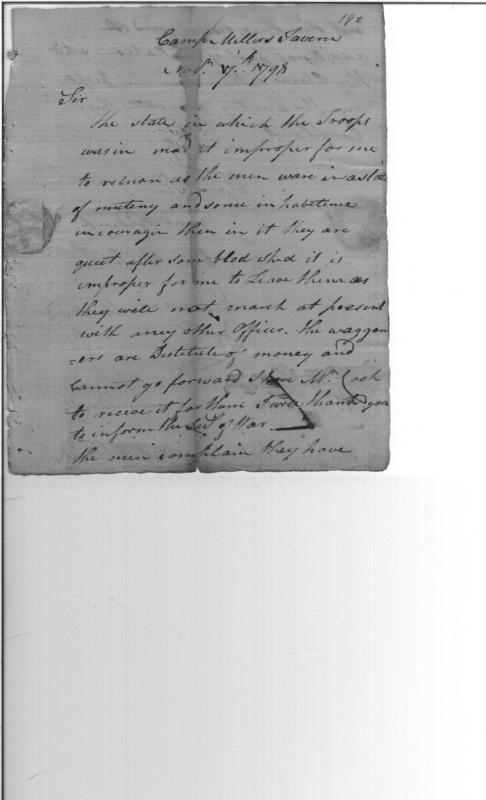 192
Camp Millers Tavern
Nov.r 7.th 1798
Sir
The state in which the Troops
was in mad it improper for me
to return as the men ware in a state
of muteny and some inhabitence
incouragin them in it they are
quiet after som blod shed it is
improper for me to Leave them as
they will not march at present
with any other Officer. the waggon
=ers are Destitute of money and
Cannot go forward I have Mr. Cook
to receive it for them I will thank you
to inform the Sec.y of War.
the men complain they have